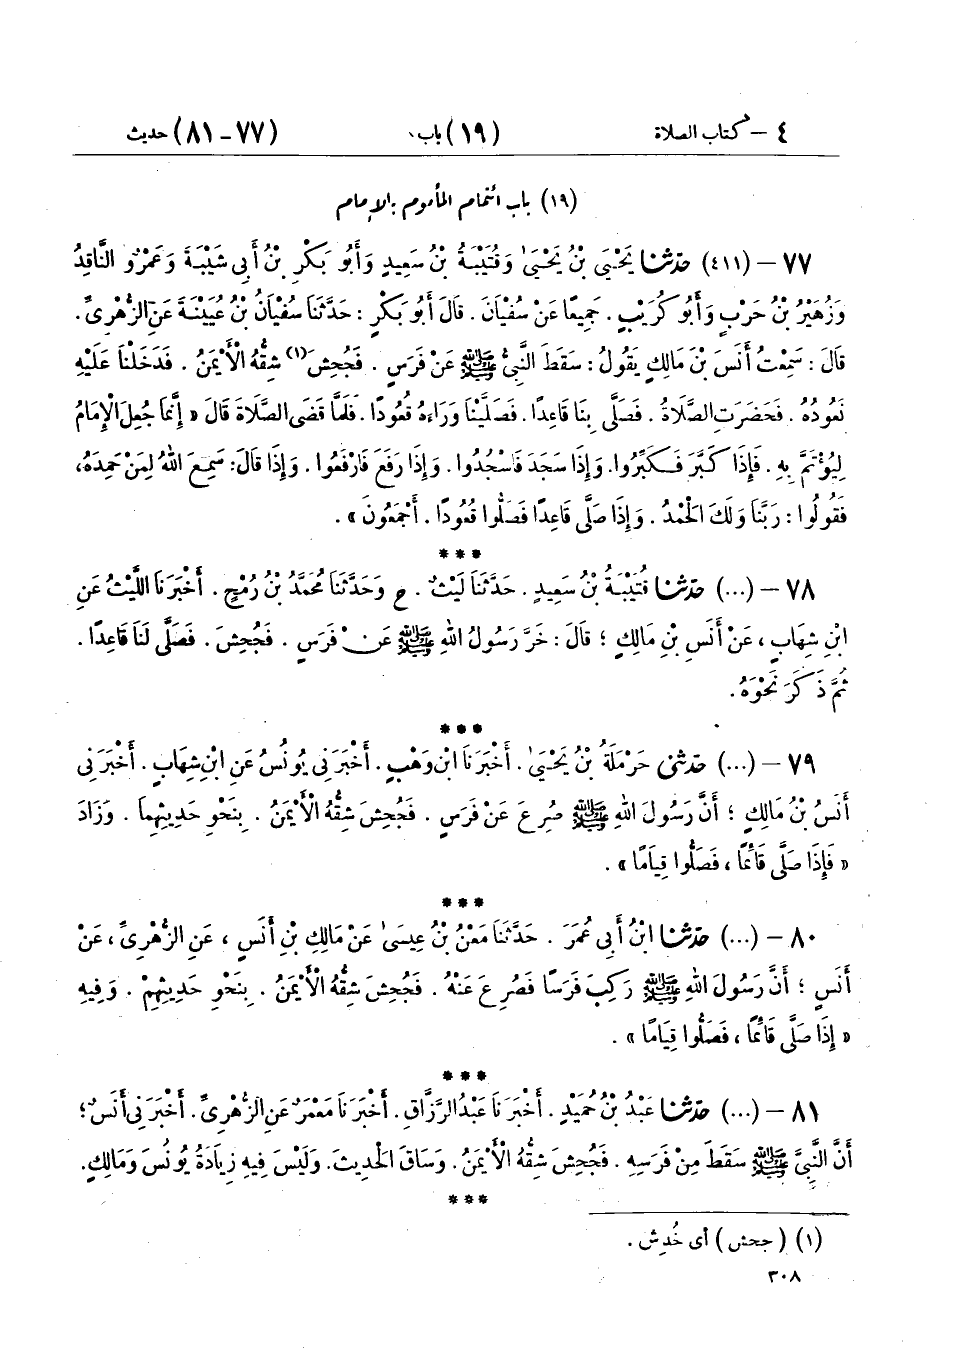 ٤ – كتاب الصلاة (١٩) باب (٧٧ – ٨١) حديث
(١٩) باب ائتمام المأموم بالإمام
٧٧ – (٤١١) حدثنا يَحْيَىٰ بْنُ يَحْيَىٰ وَقُتَيْبَةُ بْنُ سَعِيدٍ وَأَبُو بَكْرِ بْنُ أَبِي شَيْبَةَ وَعَمْرٌو النَّاقِدُ
وَزُهَيْرُ بْنُ حَرْبٍ وَأَبُو كُرَيْبٍ . جَمِيعًا عَنْ سُفْيَانَ . قَالَ أَبُو بَكْرٍ : حَدَّثَنَا سُفْيَانُ بْنُ عُيَيْنَةَ عَنِ الزُّهْرِىِّ .
قَالَ : سَمِعْتُ أَنَسَ بْنَ مَالِكٍ يَقُولُ : سَقَطَ النَّبِيُّ ﷺ عَنْ فَرَسٍ . فَجُحِشَ (١) شِقُّهُ الْأَيْمَنُ . فَدَخَلْنَا عَلَيْهِ
نَعُودُهُ . فَحَضَرَتِ الصَّلَاةُ . فَصَلَّى بِنَا قَاعِدًا . فَصَلَّيْنَا وَرَاءَهُ قُعُودًا . فَلَمَّا قَضَى الصَّلَاةَ قَالَ « إِنَّمَا جُعِلَ الْإِمَامُ
لِيُؤْتَمَّ بِهِ . فَإِذَا كَبَّرَ فَكَبِّرُوا. وَإِذَا سَجَدَ فَاسْجُدُوا . وَإِذَا رَفَعَ فَارْفَعُوا . وَإِذَا قَالَ: سَمِعَ اللهُ لِمَنْ حَمِدَهُ،
فَقُولُوا : رَبَّنَا وَلَكَ الْحَمْدُ . وَإِذَا صَلَّى قَاعِدًا فَصَلُّوا قُعُودًا . أَجْمَعُونَ » .
***
٧٨ – (...) حدثنا قُتَيْبَةُ بْنُ سَعِيدٍ . حَدَّثَنَا لَيْثٌ . ح وَحَدَّثَنَا مُحَمَّدُ بْنُ رُمْحٍ . أَخْبَرَنَا اللَّيْثُ عَنِ
ابْنِ شِهَابٍ ، عَنْ أَنَسِ بْنِ مَالِكٍ ؛ قَالَ : خَرَّ رَسُولُ اللهِ ﷺ عَنْ فَرَسٍ . فَجُحِشَ . فَصَلَّى لَنَا قَاعِدًا .
ثُمَّ ذَكَرَ نَحْوَهُ .
***
٧٩ – (...) حدثني حَرْمَلَةُ بْنُ يَحْيَىٰ . أَخْبَرَنَا ابْنُ وَهْبٍ . أَخْبَرَنِي يُونُسُ عَنِ ابْنِ شِهَابٍ . أَخْبَرَنِي
أَنَسُ بْنُ مَالِكٍ ؛ أَنَّ رَسُولَ اللهِ ﷺ صُرِعَ عَنْ فَرَسٍ . فَجُحِشَ شِقُّهُ الْأَيْمَنُ . بِنَحْوِ حَدِيثِهِمَا . وَزَادَ
« فَإِذَا صَلَّى قَائِمًا ، فَصَلُّوا قِيَامًا » .
***
٨٠ – (...) حدثنا ابْنُ أَبِي عُمَرَ . حَدَّثَنَا مَعْنُ بْنُ عِيسَىٰ عَنْ مَالِكِ بْنِ أَنَسٍ ، عَنِ الزُّهْرِىِّ ، عَنْ
أَنَسٍ ؛ أَنَّ رَسُولَ اللهِ ﷺ رَكِبَ فَرَسًا فَصُرِعَ عَنْهُ . فَجُحِشَ شِقُّهُ الْأَيْمَنُ . بِنَحْوِ حَدِيثِهِمْ . وَفِيهِ
« إِذَا صَلَّى قَائِمًا ، فَصَلُّوا قِيَامًا » .
***
٨١ – (...) حدثنا عَبْدُ بْنُ حُمَيْدٍ . أَخْبَرَنَا عَبْدُ الرَّزَّاقِ . أَخْبَرَنَا مَعْمَرٌ عَنِ الزُّهْرِىِّ . أَخْبَرَنِي أَنَسٌ ؛
أَنَّ النَّبِيَّ ﷺ سَقَطَ مِنْ فَرَسِهِ . فَجُحِشَ شِقُّهُ الْأَيْمَنُ . وَسَاقَ الْحَدِيثَ. وَلَيْسَ فِيهِ زِيَادَةُ يُونُسَ وَمَالِكٍ.
***
(١) (جحش) أى خُدِش .
٣٠٨